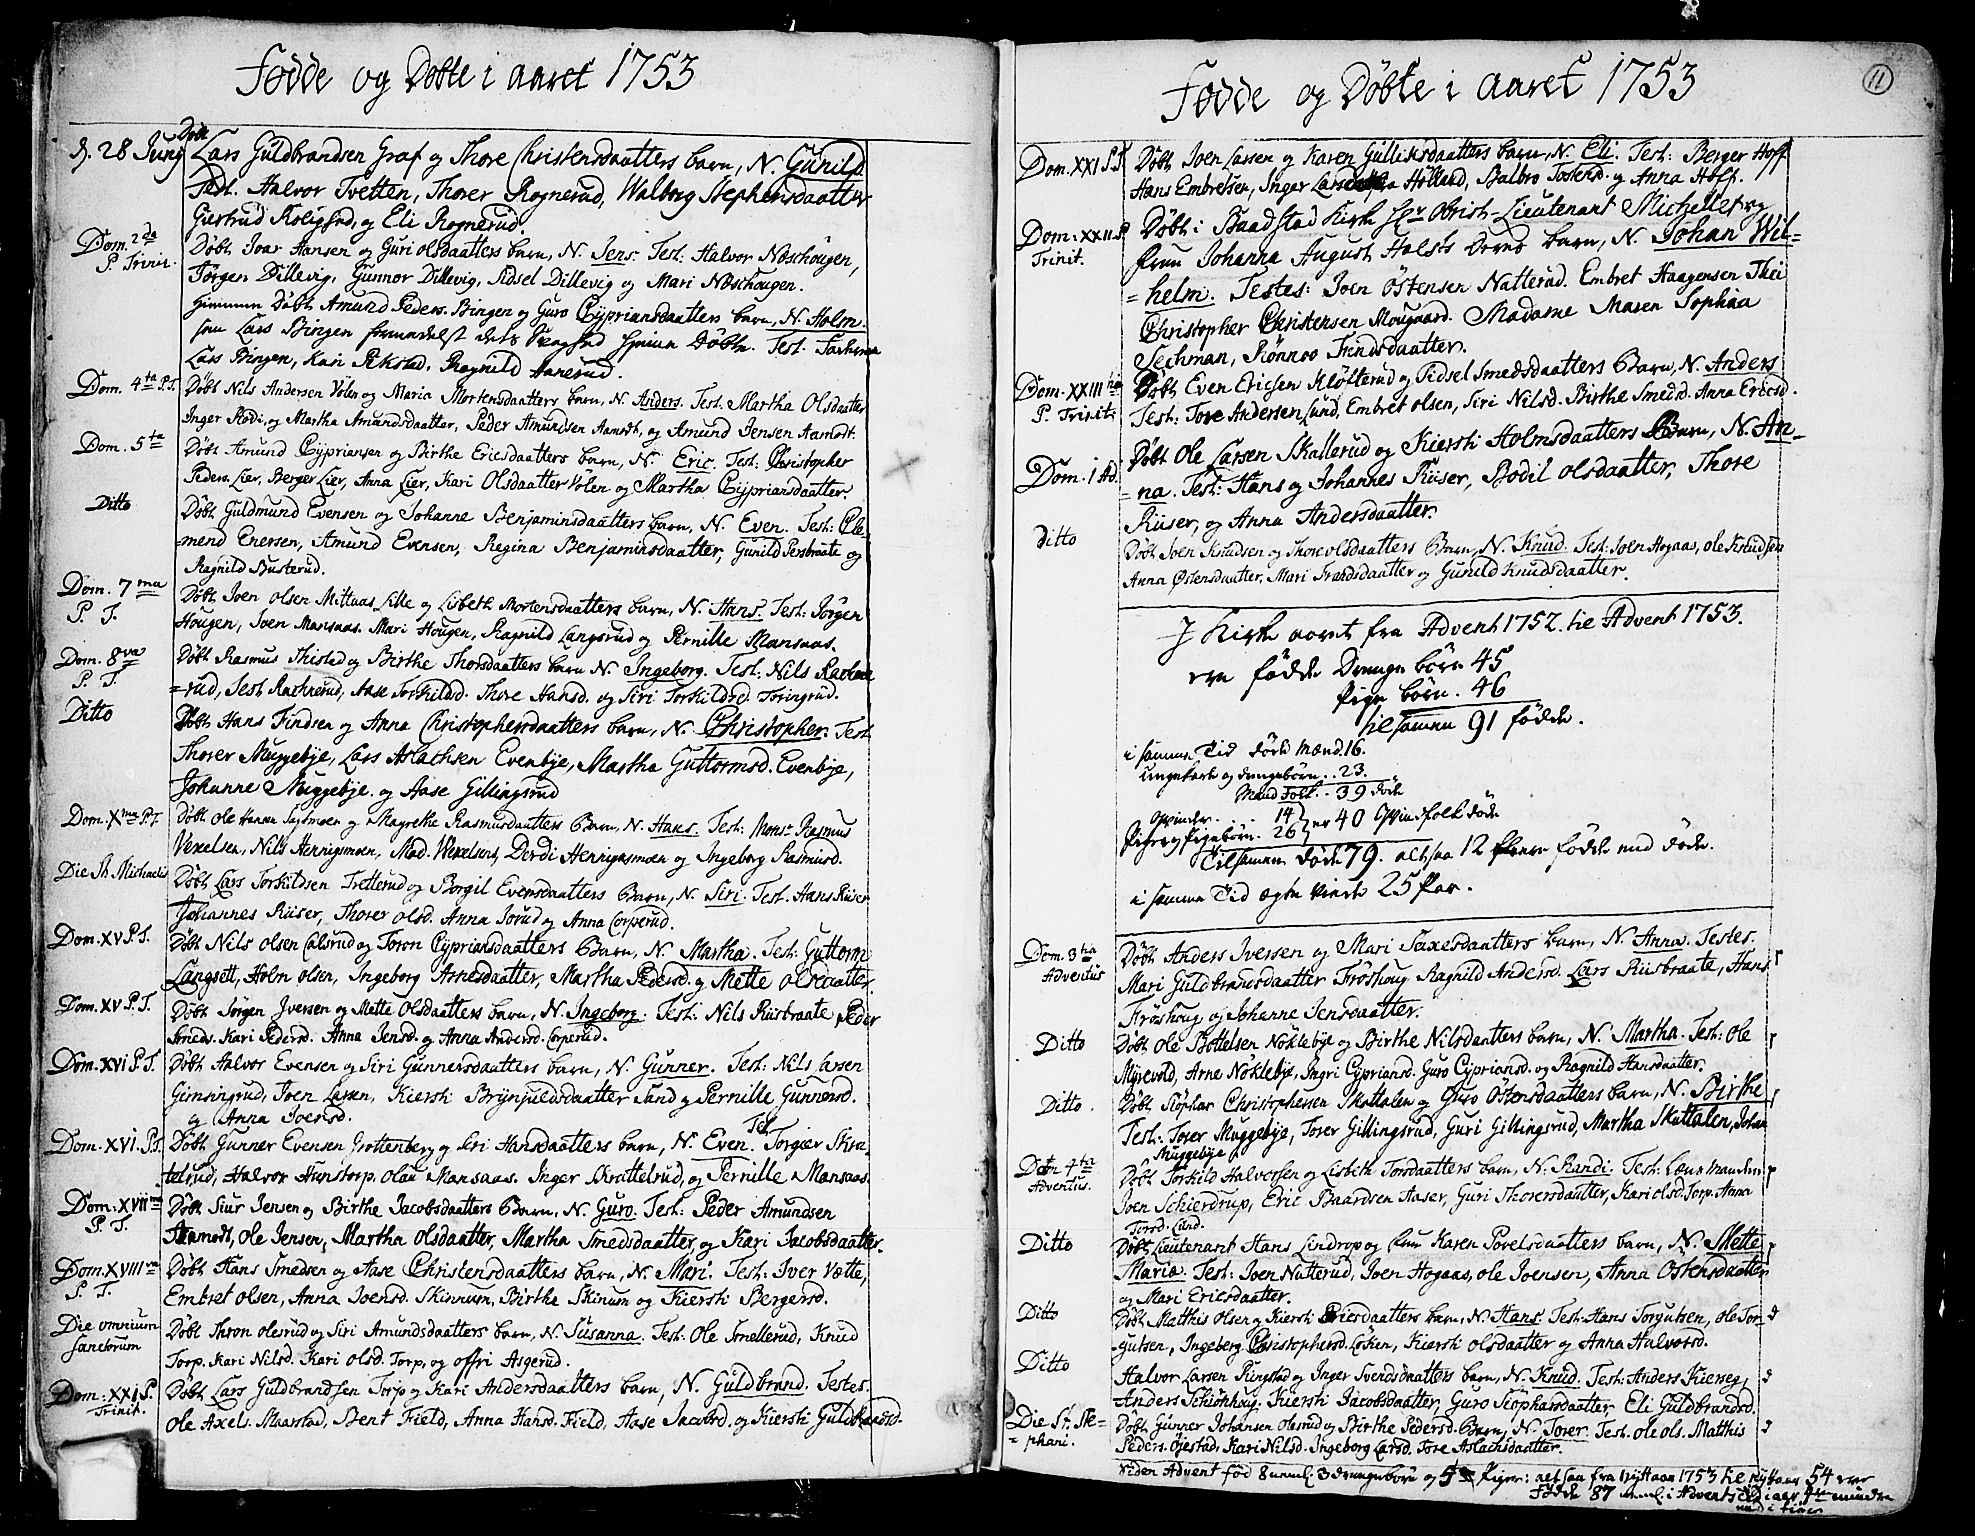 Fødde og Døbte i aaret 1753
d. 28 Junÿ Døbt Lars Guldbrandsen Graf og Thore Christensdaatters barn, N. Gunild
Test. Halvor Tvetten, Thorer Rognerud, Walborg Stephensdaatter
Giertrud Koligstad, og Eli Rognerud.
Dom. 2da P. Trinit. Døbt Ivar Hansen og Guri olsdaatters barn, N. Jens. Test: Halvor Næschougen,
Jørgen Dillevig, Gunnor Dillevig, Sidsel Dillevig og Mari Næschougen.
Hiemmen Døbt Amund Peders. Bingen og Guro Cyprianisdaatters barn, N. Holm.
som Lars Bingen formedelst dets Svaghed hiema Døbte. Test.
Lars Bingen, Kari Rikstad, Ragnild Hanerud.
Dom. 4ta P.T. Døbt Nils Andersen Volen og Maria Mortensdaatters barn, N. Anders. Test. Martha Olsdaatter
Inger Rødi, og Martha Amundsdaatter, Peder Amundsen Aamodt, og Amund Jensen Aamodt.
Dom. 5ta Døbt Amund Cypriansen og Birthe Ericsdaatters barn, N. Eric. Test. Christopher
Peders. Lier, Berger Lier, Anna Lier, Kari Olsdaatter Volen og Martha Cypriansdaatter.
Ditto Døbt Guldmund Evensen og Johanne Benjaminsdaatters barn, N. Even. Test: Cle-
-mend Enersen, Amund Evensen, Regina Benjaminsdaatter, Gunild Persbraate og
Ragnild Busterud.
Dom. 7ma P. T. Døbt Joen olsen Mittaas Lille og Lisbeth Mortensdaatters barn, N. Hans. Test. Jørgen
Hougen, Joen Mansaas. Mari Hougen, Ragnild Langsrud og Pernille Mansaas.
Dom. 8va P. T. Døbt Rasmus Thistad og Birthe Thorsdaatters barn N. Ingeborg. Test: Nils
=rud, Test Rachnerud, Aase Torkildsd. Thore Hansd. og Siri Torkildsd. Toringrud.
Ditto Døbt Hans Findsen og Anna Christophersdaatters barn, N. Christopher. Test
Thorer Muggebÿe, Lars Aslachsen Evenbÿe, Martha Guttormsd. Evenbÿe,
Johanne Muggebÿe. og Aase Gillingsrud
Dom. Xma P.T. Døbt ole og Magrethe Rasmusdaatters Barn, N. Hans. Test. Monsr. Rasmus
Vexelsen, Nils Henrigsmoen, Mad. Wexelsens, Derdi Henrigsmoen og Ingeborg Rasmusd.
Die St. Michaelis Døbt Lars Torkildsen Tretterud og Borgil Evensdaatters Barn, N. Siri. Test. Hans Riiser
Johannes Riiser, Thorer olsd. Anna Jorud og Anna Corperud.
Dom. XV P.T. Døbt Nils olsen Calsrud og Toron Cypriansdaatters Barn, N. Martha. Test. Guttorm
Langsett, Holm olsen, Ingeborg Arnesdaatter, Martha Pedersd. og Mette olsdaatter.
Dom. XV P.T. Døbt Jørgen Iversen og Mette Olsdaatters barn, N. Ingeborg. Test. Nils Riisbraate Peder
Smeds. Kari Pedersd. Anna Jensd. og Anna Andersd. Corperud.
Dom. XVI P.T. Døbt Halvor Evensen og Siri Gunnersdaatters barn, N. Gunner. Test. Nils Larsen
Gimsingrud, Joen Larsen, Kiersti Brynjuldsdaatter Sand og Pernille Gunnersd.
og Anna Joensd.
Dom. XVI. P.T. Døbt Gunner Evensen Grottenberg og Siri Hansdaatters barn, N. Even. Test Torgier Skra-
telrud, Halvor Hunstorp. Olau Mansaas. Inger Skrattelrud, og Pernille Mansaas.
Dom. XVIIma P. T. Døbt Siur Jensen og Birthe Jacobsdaatters Barn, N. Guro. Test. Peder Amundsen
Aamodt, ole Jensen, Martha Olsdaatter, Martha Smedsdaatter, og Kari Jacobsdaatter.
Dom. XVIIIva P. T. Døbt Hans Smedsen og Aase Christensdaatters barn, N. Mari. Test: Iver Vætte,
Embret olsen, Anna Joensd. Skinnum, Birthe Skinum og Kiersti Bergersd.
Die omnium sanctorum Døbt Thron olesrud og Siri Amundsdaatters barn, N. Susanna. Test. Ole Smellerud, Knud
Torp. Kari Nilsd. Kari olsd. Torp, og offri Asgerud.
Dom. XXI P. Trinit. Døbt Lars Guldbrandsen Torp og Kari Andersdaatters barn, N. Guldbrand. Testes
ole Axels. Maarstad, Bent Field, Anna Hansd. Field, Aase Jacobsd. og Kiersti Guldbrandsd.
Fødde og Døbte i aaret 1753
11
Dom. XXI P.T. Døbt Joen Larsen og Karen Gulliksdaatters barn, N. Eli. Test: Berger Hoff
Hans Embretsen, Inger Larsd. Holland, Balbro og Anna Hoff.
Dom: XXII P. Trinit. Døbt i Baadstad Kirke Hr. Obrist-Lieutenant Michellet og
Fruu Johanna August Halsts Deres barn, N. Johan Wil=
=helm. Testes: Joen Østensen Natterud. Embret Haagensen Thei
Christopher Christensen Mougaard. Madame Maren Sophia
Sechman, Rønnov Trindsdaatter.
Dom. XXIIItia P. Trinit. Døbt Even Ericsen Kløfterud og Sidsel Smedsdaatters Barn, N. Anders
Test: Tore Andersen Lund, Embret olsen, Siri Nilsd. Birthe Smedsd. Anna Ericsd.
Dom. 1 Ad. Døbt Ole Larsen Skallerud og Kiersti Holmsdaatters Barn, N. An-
=na. Test: Hans og Johannes Riiser, Bodil olsdaatter, Thore
Riiser, og Anna Andersdaatter.
Ditto Døbt Joen Knudsen og Thore olsdaatters Barn, N. Knud. Test: Joen Hogaas, ole Knudsen
Anna Østensdaatter, Mari Trandsdaatter og Gunild Knudsdaatter.
J Kirke aaret fra Advent 1752. til Advent 1753.
ere fødde Drenge børn 45
Pige børn. 46
tilsamen 91 fødde.
i samme Tid døde Mænd. 16.
ungekarle og drengebørn. . 23.
Mand Folk. . 39 døde
Qvinder. . . . 14
Piger og Pigebørn. 26 er 40 Qvindfolk døde
Tilsamen døde 79. altsaa 12 flere fødde end døde.
i samme Tid ægte viede 25 Par.
Dom. 3tia Adventus Døbt Anders Iversen og Mari Saxesdaatters barn, N. Anna. Testes.
Mari Guldbrandsdaatter Frøshoug Ragnild Andersd. Lars Riisbraate, Hans
Frøshoug og Johanne Jensdaatter.
Ditto Døbt ole Bottelsen Nøklebÿe og Birthe Nilsdaatters barn, N. Martha. Test: ole
Mÿrevold, Arne Nøklebÿe, Ingri Cypriansd. Guro Cypriansd. og Ragnild Hansdaatter.
Ditto. Døbt Stophar Christophersen Skattalen og Guro Østensdaatters barn, N. Birthe
Test: Torer Muggebÿe, Torer Gillingsrud, Guri Gillingsrud, Martha Skattalen, Johan
Muggebÿe
Dom 4ta Adventus. Døbt Torkild Halvorsen og Lisbeth Torsdaatters barn, N. Randi. Test:
Joen Schierdrup, Eric Baardsen Aaser, Guri Thorersdaatter, Kari olsd. Torp. Anna
Torsd. Lund.
Ditto Døbt Lieutenant Hans Lindrop og Fruu Karen Povelsdaatters barn, N. Mette
Maria. Test: Joen Nutterud, Joen Hogaas, ole Joensen, Anna Ostensdaatter
og Mari Ericsdaatter.
Ditto Døbt Matthis Olsen og Kiersti Ericsdaatters barn, N. Hans. Test. Hans Torgutsen, ole Tor-
gutsen, Ingeborg Christophersd. Løken, Kiersti olsdaatter og Anna Halvorsd.
Ditto Halvor Larsen Ringstad og Inger Svendsdaatters barn, N. Knud. Test: Anders Kierseg,
Anders Schiønhoug. Kiersti Jacobsdaatter, Guro Stophersdaatter Eli Guldbrandsd.
Die St. Ste=
=phani. Døbt Gunner Johansen olesrud og Birthe Pedersd. Barn, N. Torer. Test. ole ols. Matthis
Peders. Øiestad, Kari Nilsd. Ingeborg Larsd. Tore Aslachsdaatter.
Siden Advent fød 8 nemml. 3 drengebørn og 5 Piger: altsaa fra NytAar 1753 til NytAar 54 ere
Fødde 87